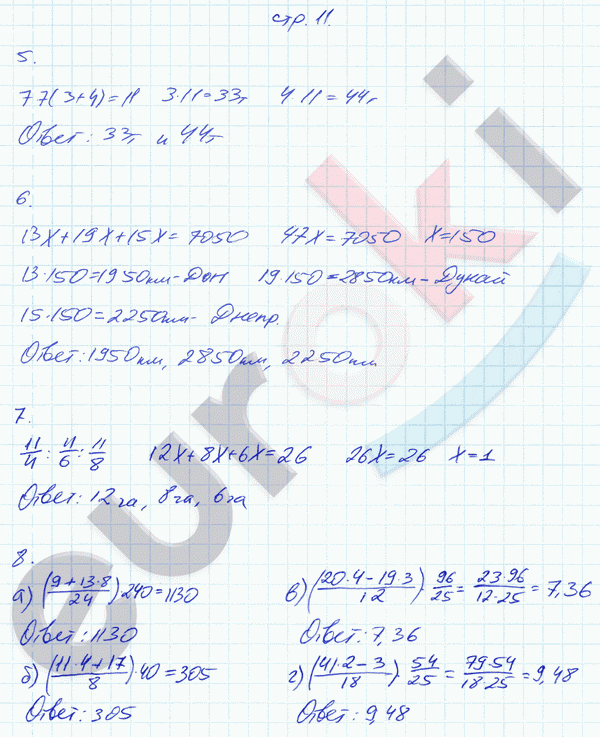 стр. 11.
5.
77(3+4)=11   3·11=33г   4 11=44г
Ответ: 33г и 44г
6.
13x+19x+15x=7050   47x=7050   x=150
13·150=1950км-Дон   19·150=2850км-Дунай
15·150=2250км- Днепр.
Ответ: 1950км, 2850км, 2250км
7.
11/4 : 11/6 : 11/8   12x+8x+6x=26   26x=26   x=1
Ответ: 12га, 8га, 6га
8.
а) ((9+13·8)/24)·240=1130
Ответ: 1130
б) ((11·4+17)/8)·40=305
Ответ: 305
в) ((20·4-19·3)/12)·96/25=(23·96)/(12·25)=7,36
Ответ: 7,36
г) ((41·2-3)/18)·54/25=(79·54)/(18·25)=9,48
Ответ: 9,48
euroki